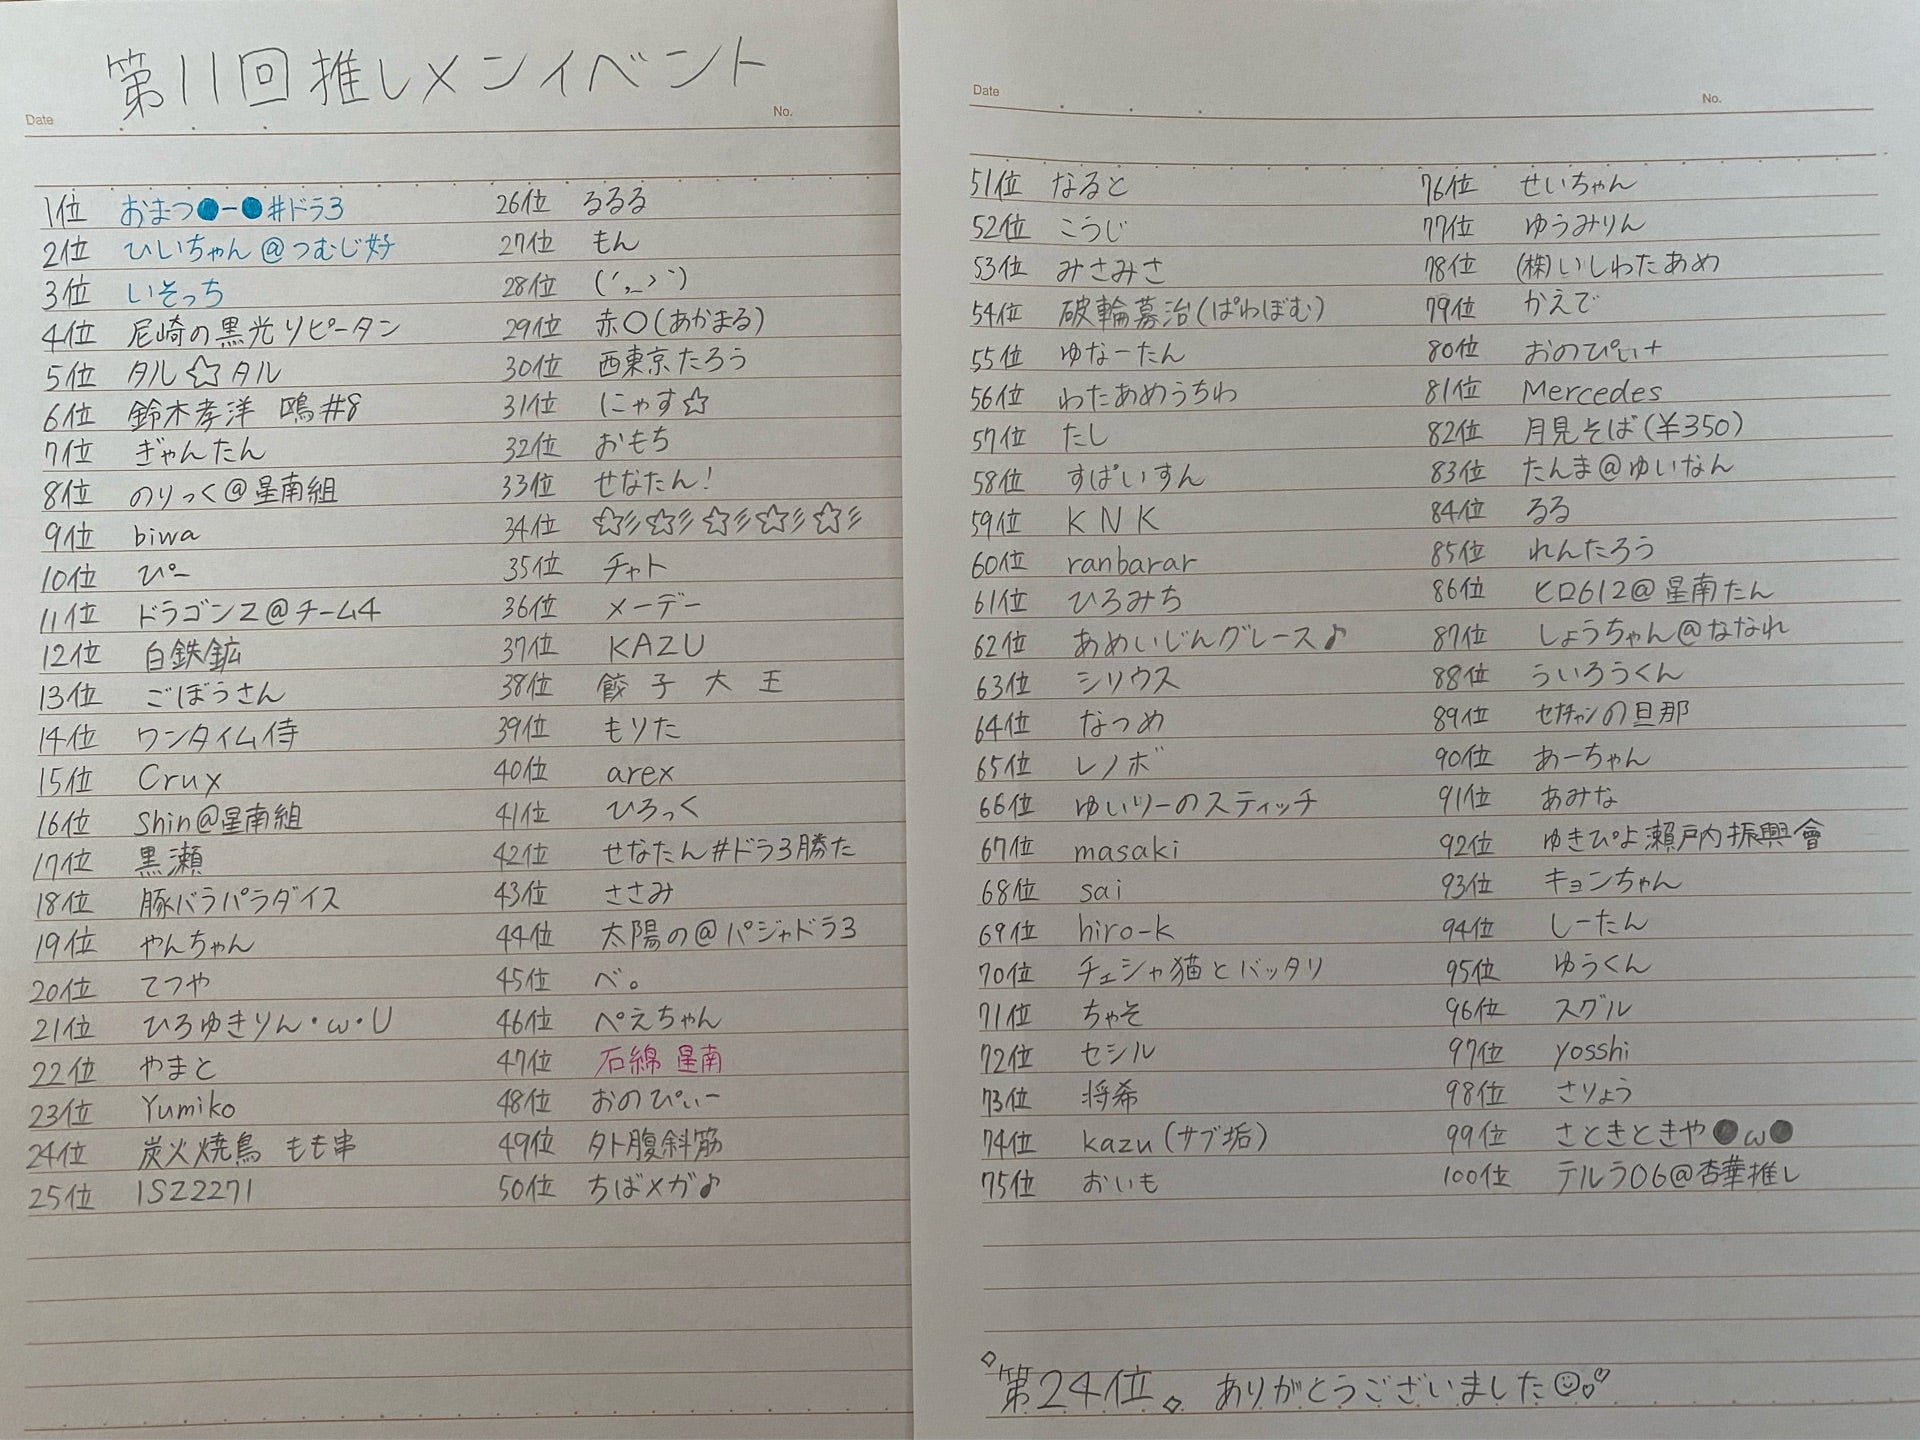 第11回推しメンイベント
Date
No.
1位 おまつ●ー●#ドラ3
2位 ひいちゃん@つむじ好
3位 いそっち
4位 尼崎の黒光リピータン
5位 タル☆タル
6位 鈴木孝洋 鴎#8
7位 ぎゃんたん
8位 のりっく@星南組
9位 biwa
10位 ぴー
11位 ドラゴンZ@チーム4
12位 白鉄鉱
13位 ごぼうさん
14位 ワンタイム侍
15位 Crux
16位 Shin@星南組
17位 黒瀬
18位 豚バラパラダイス
19位 やんちゃん
20位 てつや
21位 ひろゆきりん・ω・U
22位 やまと
23位 Yumiko
24位 炭火焼鳥 もも串
25位 ISZ2271
26位 るるる
27位 もん
28位 (´,_>`)
29位 赤〇(あかまる)
30位 西東京たろう
31位 にゃす☆
32位 おもち
33位 せなたん!
34位 ☆彡☆彡☆彡☆彡☆彡
35位 チャト
36位 メーデー
37位 KAZU
38位 餃子大王
39位 もりた
40位 arex
41位 ひろっく
42位 せなたん#ドラ3勝た
43位 ささみ
44位 太陽の@パジャドラ3
45位 べ。
46位 ぺえちゃん
47位 石綿 星南
48位 おのぴぃー
49位 外腹斜筋
50位 ちばメガ♪
Date
No.
51位 なると
52位 こうじ
53位 みさみさ
54位 破輪募治(ぱわぼむ)
55位 ゆなーたん
56位 わたあめうちわ
57位 たし
58位 すぱいすん
59位 KNK
60位 ranbarar
61位 ひろみち
62位 あめいじんグレース♪
63位 シリウス
64位 なつめ
65位 レノボ
66位 ゆいツーのスティッチ
67位 masaki
68位 sai
69位 hiro-k
70位 チェシャ猫とバッタリ
71位 ちゃそ
72位 セシル
73位 将希
74位 kazu(サブ垢)
75位 おいも
76位 せいちゃん
77位 ゆうみりん
78位 (株)いしわたあめ
79位 かえで
80位 おのぴぃ+
81位 Mercedes
82位 月見そば(¥350)
83位 たんま@ゆいなん
84位 るる
85位 れんたろう
86位 ヒロ612@星南たん
87位 しょうちゃん@ななれ
88位 ういろうくん
89位 セナチャンの旦那
90位 あーちゃん
91位 あみな
92位 ゆきぴよ瀬戸内振興會
93位 キョンちゃん
94位 しーたん
95位 ゆうくん
96位 スグル
97位 yosshi
98位 さりょう
99位 さときときや●ω●
100位 テルラ06@杏華推し
第24位。ありがとうございました☺